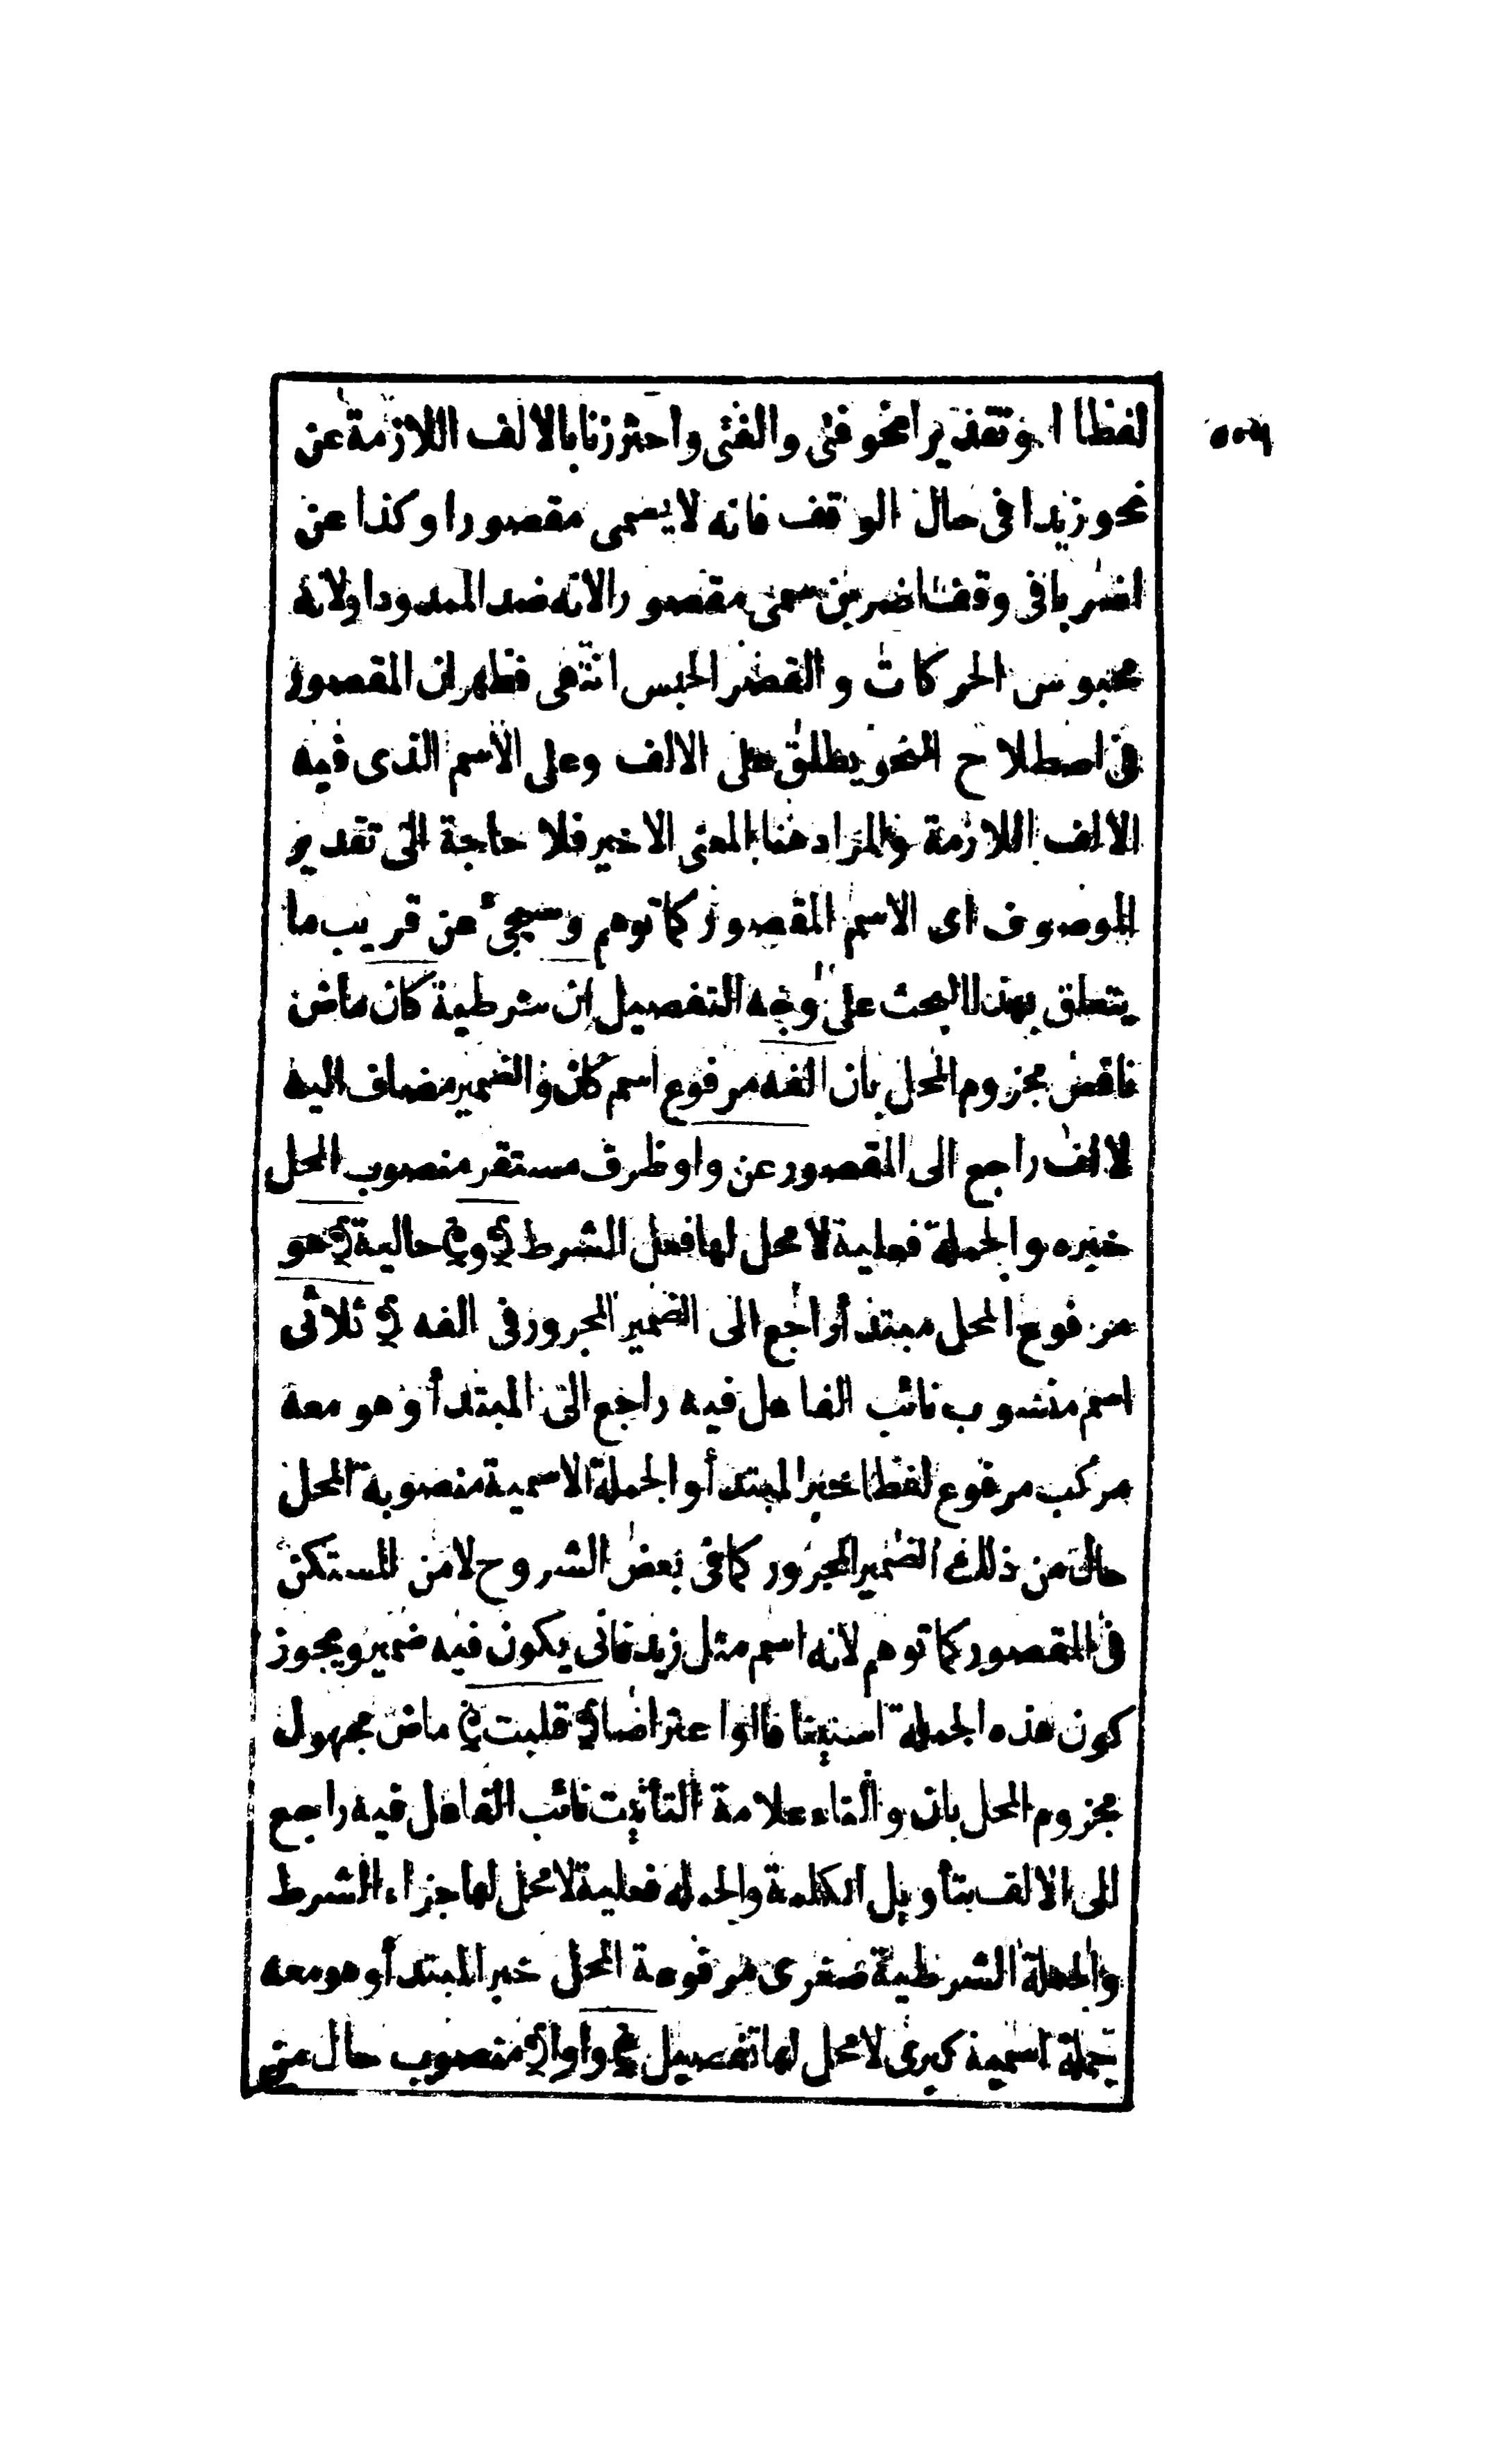 لفظا او تقديرا نحو فتى والفتى واحترزنا بالالف اللازمة عن
نحو زيدا فى حال الوقف فانه لا يسمى مقصورا وكذا عن
اضربا فى وقف اضربن سمى مقصورا لانه ضد الممدود اولانه
محبوس الحركات والقصر الحبس انتهى فظهر ان المقصور
فى اصطلاح النحو يطلق على الالف وعلى الاسم الذى فيه
الالف اللازمة والمراد هنا المعنى الاخير فلا حاجة الى تقدير
الموصوف اى الاسم المقصور كما توهم وسيجئ عن قريب ما
يتعلق بهذا البحث على وجه التفصيل ان شرطية كان ماض
ناقص مجزوم المحل بان الفه مرفوع اسم كان والضمير مضاف اليه
لالف راجع الى المقصور عن واو ظرف مستقر منصوب المحل
خبره والجملة فعلية لا محل لها فعل الشرط ﴿و﴾ حالية ﴿هو
مرفوع المحل مبتدأ راجع الى الضمير المجرور فى الفه ﴿ ثلاثى
اسم منسوب نائب الفاعل فيه راجع الى المبتدأ وهو معه
مركب مرفوع لفظا خبر المبتدأ والجملة الاسمية منصوبة المحل
حال من ذلك الضمير المجرور كما فى بعض الشروح لا من المستكن
فى المقصور كما توهم لانه اسم مثل زيد فانى يكون فيه ضمير ويجوز
كون هذه الجملة استينافا او اعتراضا ﴿قلبت﴾ ماض مجهول
مجزوم المحل بان والتاء علامة التأنيث نائب الفاعل فيه راجع
الى الالف بتأويل الكلمة والجملة فعلية لا محل لها جزاء الشرط
والجملة الشرطية صغرى مرفوعة المحل خبر المبتدأ وهو معه
جملة اسمية كبرى لا محل لها تفصيل ﴾ واوا ﴿ منصوب حال من